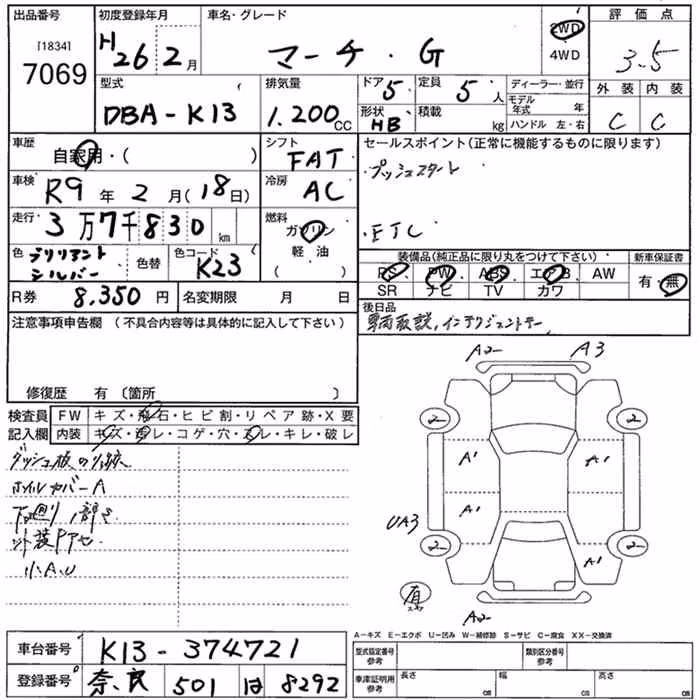 出品番号
[1834]
7069
初度登録年月
H26 2月
車名・グレード
マーチ・G
2WD
4WD
評価点
3.5
型式
DBA-K13
排気量
1.200cc
ドア 5
形状 HB
定員 5人
積載 kg
ディーラー・並行
モデル年式 年
ハンドル 左・右
外装 内装
C C
車歴
自家用・( )
シフト
FAT
セールスポイント(正常に機能するものに限ります)
・プッシュスタート
・ETC
車検
R9年2月(18日)
冷房
AC
走行
3万7千830km
燃料
ガソリン
軽油
( )
色
ブリリアントシルバー
色替
色コード
K23
装備品(純正品に限り丸をつけて下さい)
PS PW ABS エアB AW
SR ナビ TV カワ
新車保証書
有・無
R券 8,350円
名変期限 月 日
後日品
車両取説,インテリジェントキー
注意事項申告欄(不具合内容等は具体的に記入して下さい)
修復歴 有〔箇所 〕
検査員記入欄
FW キズ・飛石・ヒビ割・リペア跡・X要
内装 キズ・汚レ・コゲ・穴・スレ・キレ・破レ
ホイルカバーA
小A.U
A2 A3
2 2
A1 A1
A1
UA3
2 2
A1
有
A2
A-キズ E-エクボ U-凹み W-補修跡 S-サビ C-腐食 XX-交換済
車台番号
K13-374721
登録番号
奈良 501 は 8292
型式指定番号
参考
類別区分番号
参考
車庫証明用
参考
長さ cm
幅 cm
高さ cm